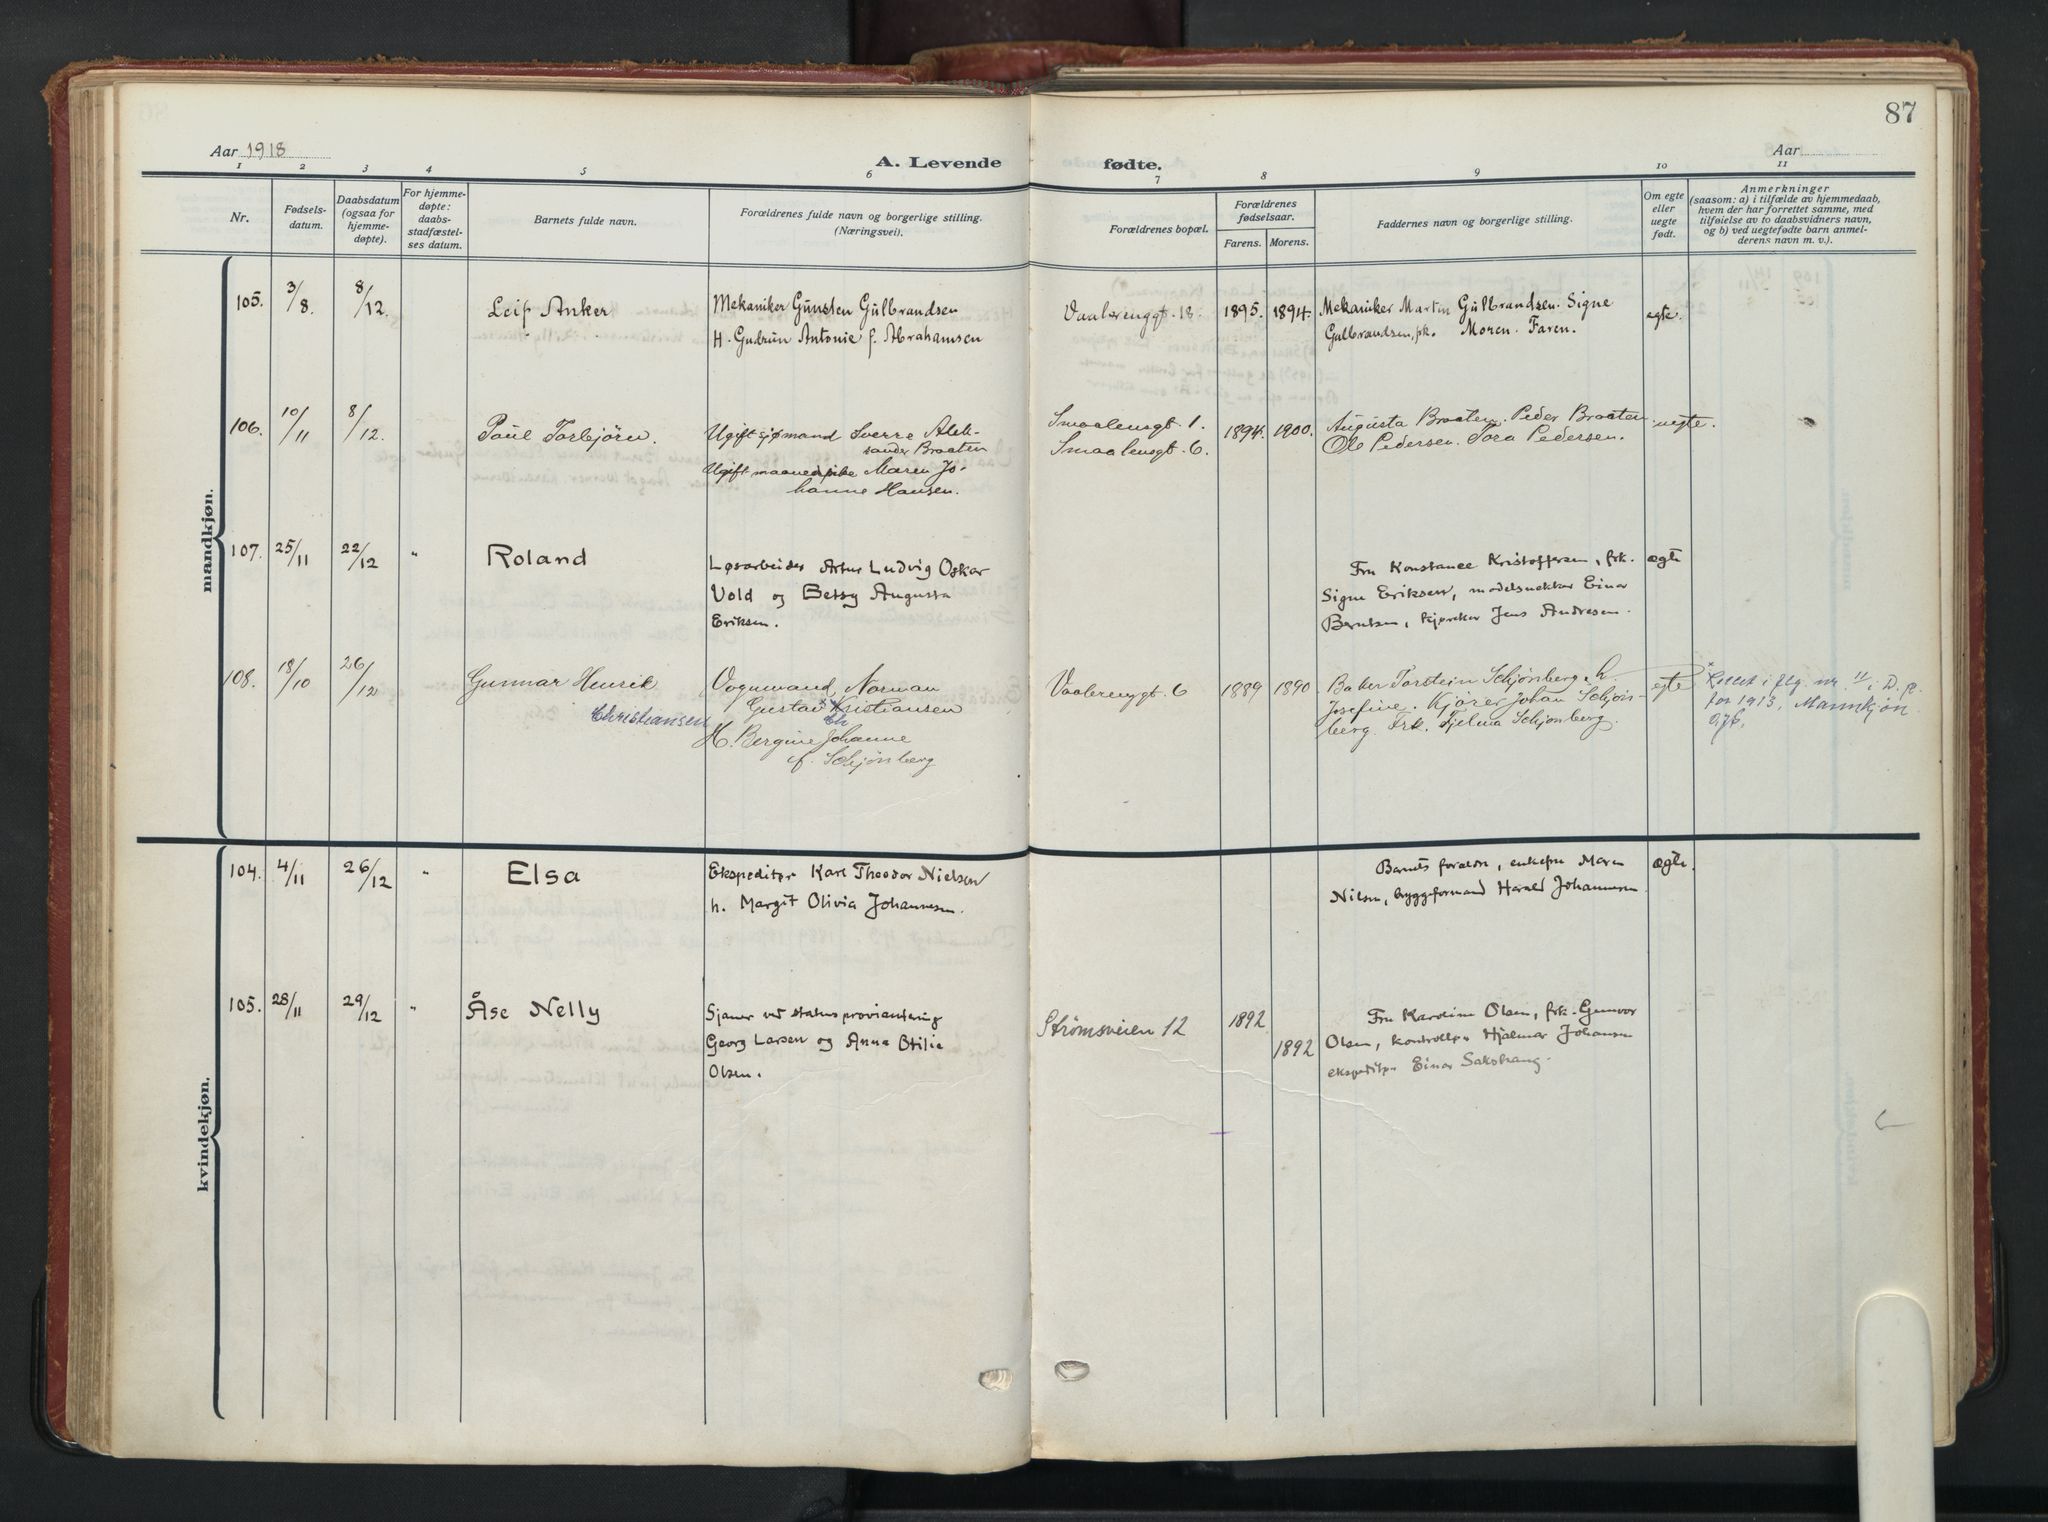 87
Aar 1918
A. Levende
fødte.
Aar
1 2 3 4 5 6 7 8 9 10 11
Nr.
Fødsels-
datum.
Daabsdatum
(ogsaa for
hjemme-
døpte).
For hjemme-
døpte:
daabs-
stadfæstel-
ses datum.
Barnets fulde navn.
Forældrenes fulde navn og borgerlige stilling.
(Næringsvei).
Forældrenes bopæl.
Forældrenes
fødselsaar.
Farens. Morens.
Faddernes navn og borgerlige stilling.
Om egte
eller
uegte
født.
Anmerkninger
(saasom: a) i tilfælde av hjemmedaab,
hvem der har forrettet samme, med
tilføielse av to daabsvidners navn,
og b) ved uegtefødte barn anmel-
derens navn m. v.).
mandkjøn.
105. 3/8. 8/12. Leif Anker
Mekaniker Gunsten Gulbrandsen
H. Gudrun Antonie f. Abrahamsen
Vaalerenggt. 18. 1895. 1894.
Mekaniker Martin Gulbrandsen. Signe
Gulbrandsen, pk. Moren. Faren.
egte.
106. 10/11 8/12. Paul Torbjörn.
Ugift sjømand Sverre Alek-
sander Braaten
Ugift maanedspike Maren Jo-
hanne Hansen.
Smaalensgt. 1.
Smaalensgt. 6.
1894. 1900.
Augusta Braaten. Peder Braaten
Ole Pedersen. Tora Pedersen.
uegte.
107. 25/11 22/12 " Roland
Løsarbeider Artur Ludvig Oskar
Vold og Betsy Augusta
Eriksen.
Fru Konstance Kristoffersen, frk.
Signe Eriksen, modelsnekker Einar
Berntsen, kjører Jens Andresen.
ægte
108. 18/10 26/12 Gunnar Henrik
Christiansen
Vognmand Norman
Gustav Kristiansen
Ch
H. Bergine Johanne
f. Schjönberg
Vaalerenggt. 6 1889 1890.
Baker Torstein Schjönberg. h.
Josefine. Kjører Johan Schjön-
berg. Frk. Hjelma Schjönberg.
egte
x Rettet i flg. nr. 11 i D. p.
for 1913, Mannkjøn
kvindekjøn.
104. 4/11 26/12 " Elsa
Ekspeditør Karl Theodor Nielsen
h. Margit Olivia Johannesen.
Barnets foreldre, enkefru Maren
Nilsen, byggeformand Harald Johannesen
ægte.
105. 28/11 29/12 " Åse Nelly
Sjauer ved statens proviantering
Georg Larsen og Anna Otilie
Olsen.
Strömsveien 12 1892
1892
Fru Karoline Olsen, frk. Gunvor
Olsen, kontrollør Hjalmar Johansen
ekspeditør Einar Sakshaug.